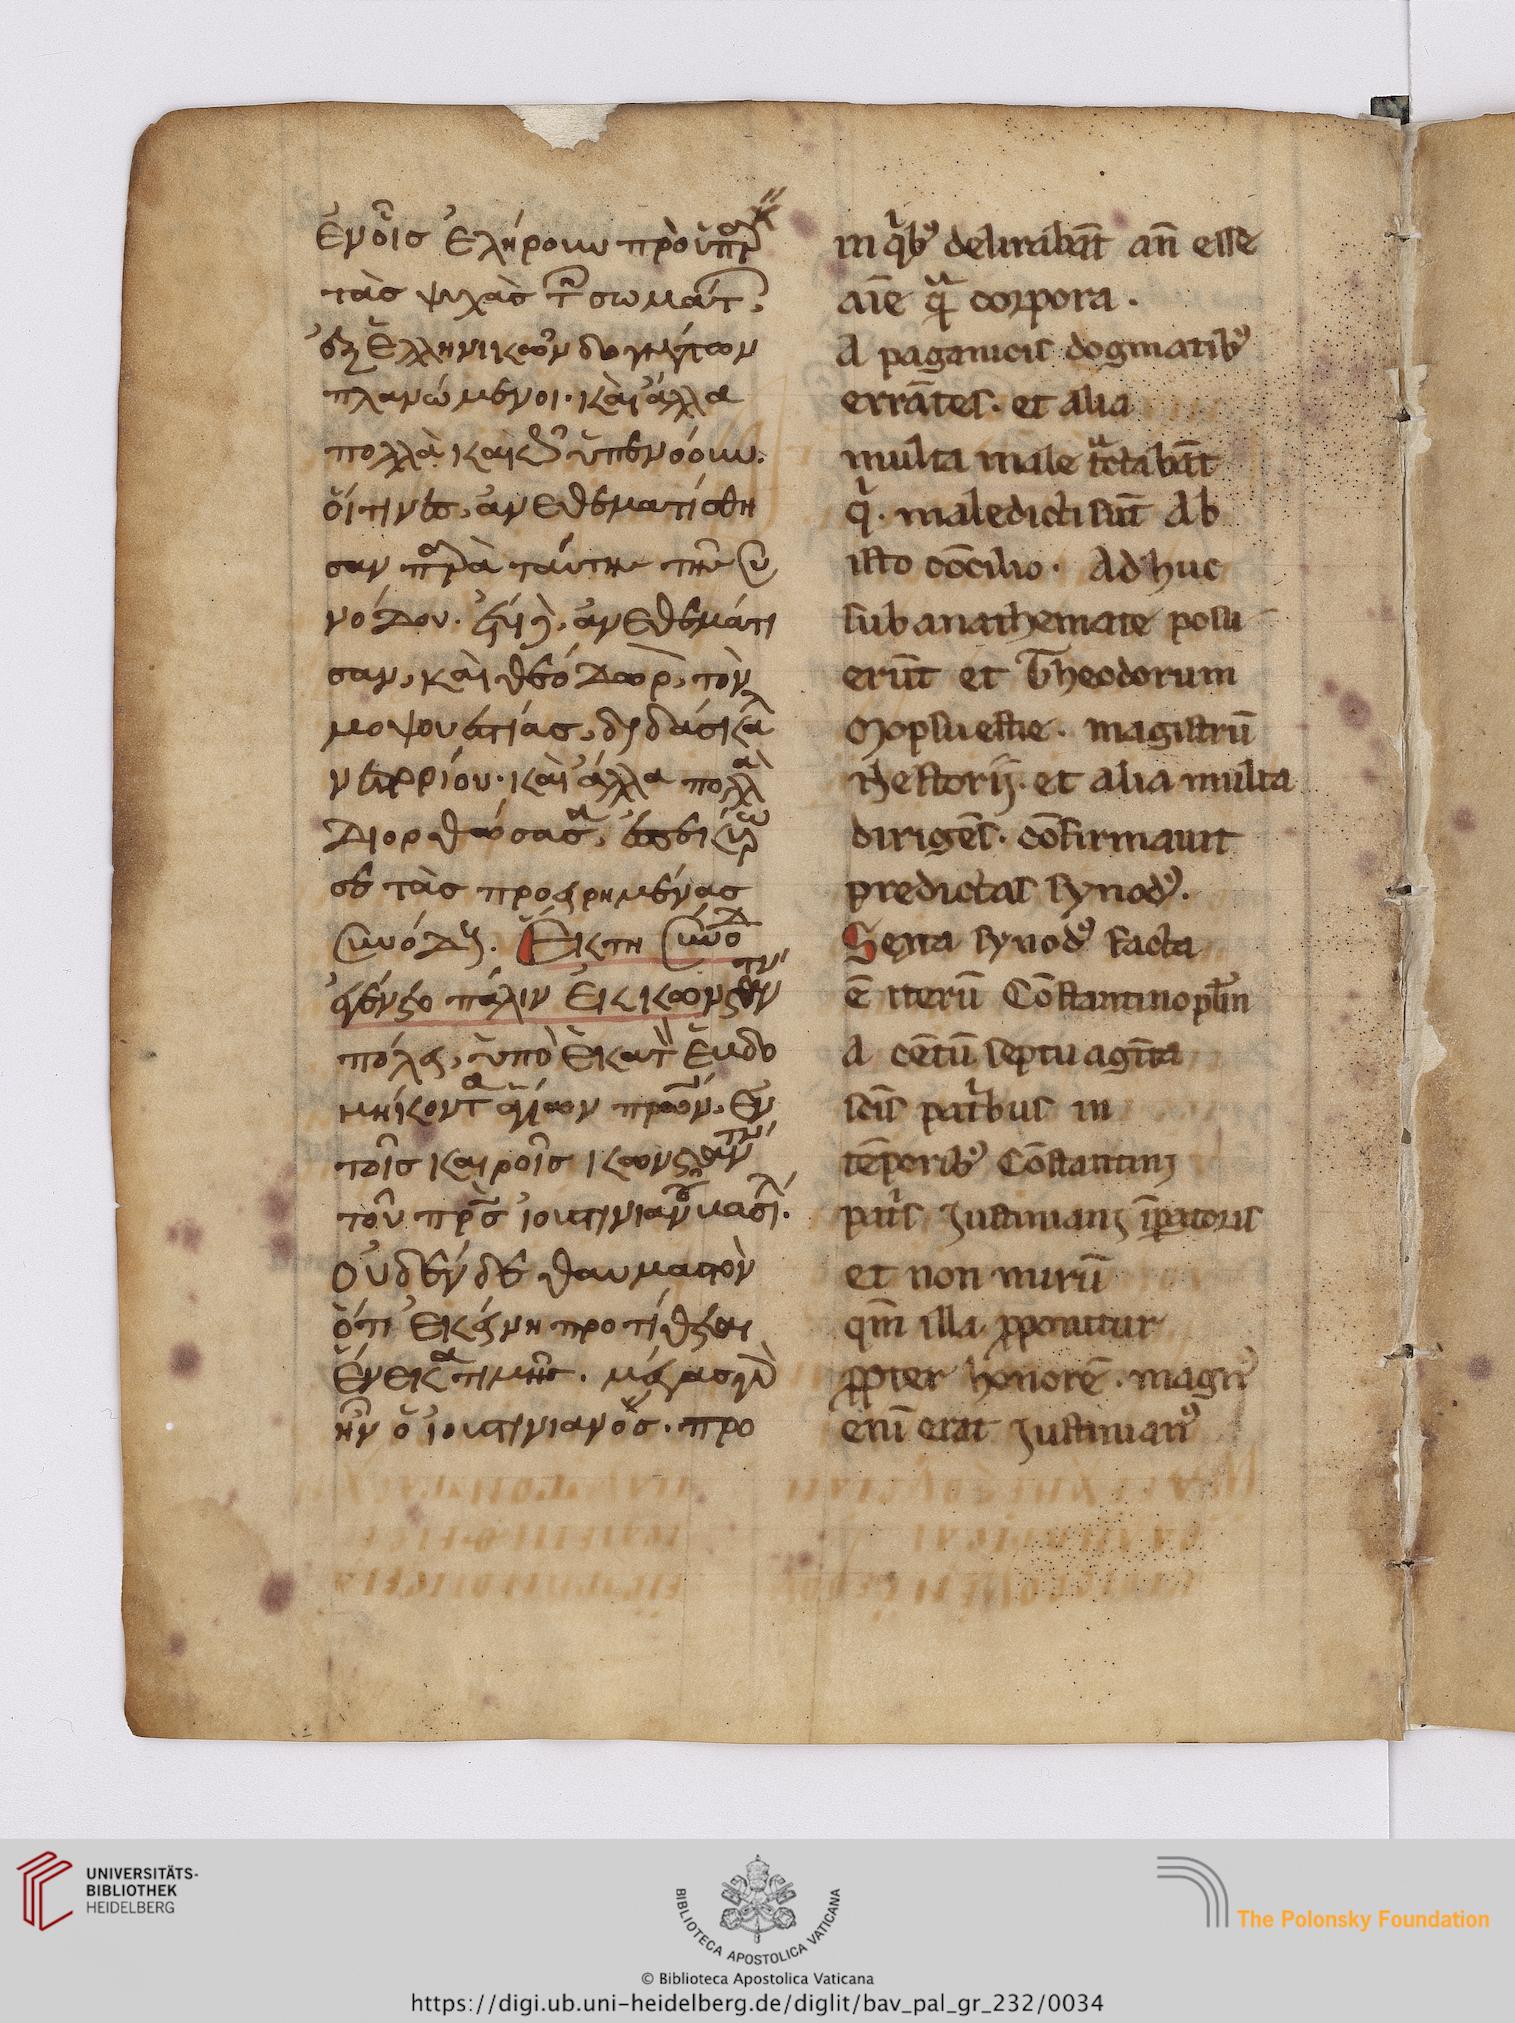 ἐν οἷς ἐλήρουν προϋπάρχειν
τὰς ψυχὰς τῶν σωμάτων,
ἐξ ἑλληνικῶν δογμάτων
πλανώμενοι· καὶ ἄλλα
πολλὰ κακῶς ὑπενόουν.
οἵτινες, ἀνεθεματίσθη
σαν παρὰ ταύτην τὴν συ
νόδον. ἔτι γὰρ, ἀνεθεμάτι
σαν, καὶ θεόδωρον, τὸν
μοψουεστίας, διδάσκαλον
νεστορίου· καὶ ἄλλα πολλὰ
διορθώσασα,
σε τὰς προειρημένας
συνόδους. Ἕκτη σύνοδος
ἐγένετο πάλιν ἐν κωνσταντίνου
πόλει, ὑπὸ ἑκατὸν ἑβδο
μήκοντα ἁγίων πατέρων. ἐν
τοῖς καιροῖς κωνσταντίνου
τοῦ πατρὸς ἰουστινιανοῦ βασιλέως.
οὐδὲν δὲ θαυμαστὸν
ὅτι ἐκείνη προτίθεται
ἕνεκα τιμῆς. μέγας γὰρ
ἦν ὁ ἰουστινιανός. προ
in quibus delirabant ante esse
anime quam corpora.
A paganicis dogmatibus
errantes. et alia
multa male tractabant
qui. maledicti sunt Ab
isto concilio. Adhuc
sub anathemate posu
erunt et Theodorum
Mopsuestie. magistrum
Nestorij. et alia multa
dirigens. confirmauit
predictas synodus.
Sexta synodus facta
est iterum Constantinopolim
A centum septuaginta
sanctis patribus in
temporibus Constantini
patris Iustiniani imperatoris
et non mirum
quoniam illa proponitur
propter honorem. magnus
enim erat Iustinianus
UNIVERSITÄTS-
BIBLIOTHEK
HEIDELBERG
BIBLIOTECA APOSTOLICA VATICANA
© Biblioteca Apostolica Vaticana
The Polonsky Foundation
https://digi.ub.uni-heidelberg.de/diglit/bav_pal_gr_232/0034